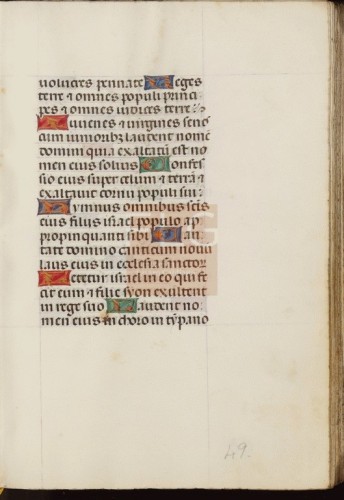 volucres pennate Reges
terre ⁊ omnes populi princi
pes ⁊ omnes iudices terre
Iuuenes ⁊ virgines senes
cum iunioribꝫ laudent nomē
domini quia exaltatū est no
men eius solius Confes
sio eius super celum ⁊ terrā ⁊
exaltauit cornu populi sui
Himnus omnibus scīs
eius filiis israel populo ap
propinquanti sibi Can
tate domino canticum nouū
laus eius in ecclesia sanctor
Letetur israel in eo qui fe
cit eum ⁊ filie syon exultent
in rege suo Laudent no
men eius in choro in tympano
49.